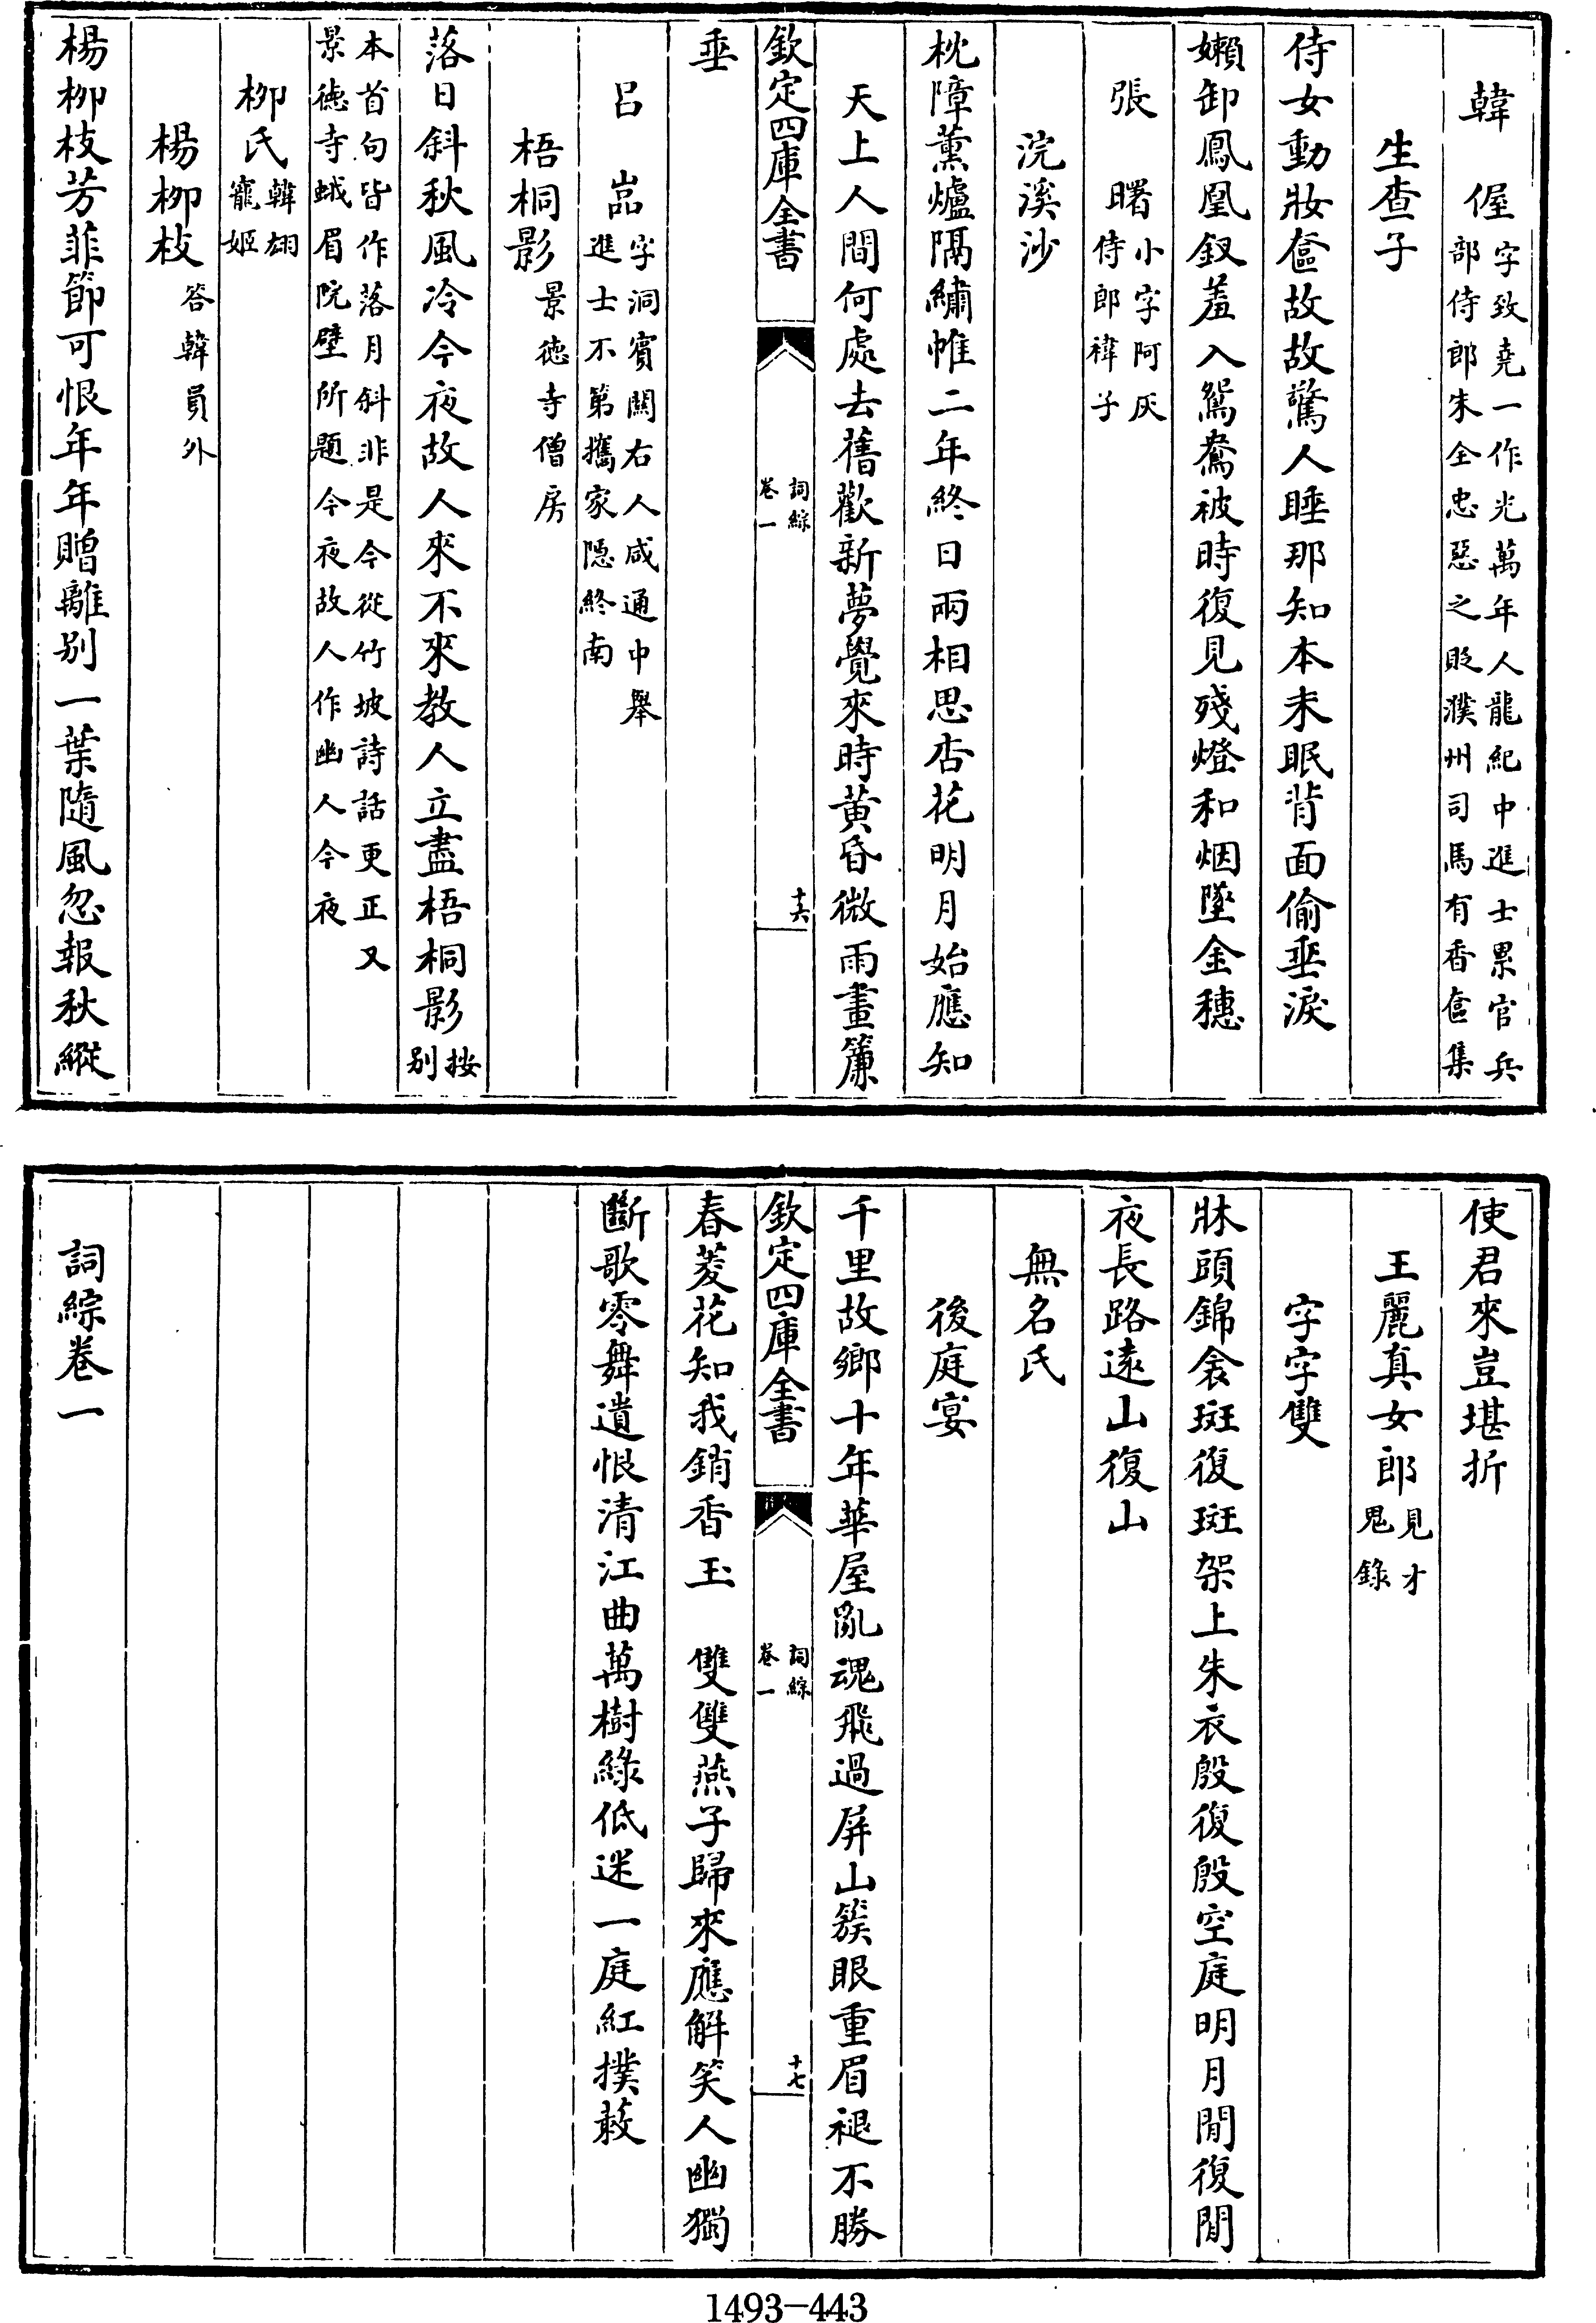 韓　偓字致堯一作光萬年人龍紀中進士累官兵
部侍郎朱全忠惡之貶濮州司馬有香奩集
生查子
侍女動妝奩故故驚人睡那知本未眠背面偷垂淚
嬾卸鳳凰釵羞入鴛鴦被時復見殘燈和烟墜金穗
張　曙小字阿灰
侍郎禕子
浣溪沙
枕障薰爐隔繡帷二年終日兩相思杏花明月始應知
天上人間何處去舊歡新夢覺來時黄昏微雨畫簾
欽定四庫全書
詞綜
卷一
十六
垂
吕　嵓字洞賓關右人咸通中舉
進士不第攜家隱終南
梧桐影景徳寺僧房
落日斜秋風冷今夜故人來不來教人立盡梧桐影按
别
本首句皆作落月斜非是今從竹坡詩話更正又
景徳寺蛾眉院壁所題今夜故人作幽人今夜
柳氏韓翃
寵姬
楊柳枝答韓員外
楊柳枝芳菲節可恨年年贈離别一葉隨風忽報秋縱
使君來豈堪折
王麗真女郎見才
鬼錄
字字雙
牀頭錦衾斑復斑架上朱衣殷復殷空庭明月閒復閒
夜長路遠山復山
無名氏
後庭宴
千里故鄉十年華屋亂魂飛過屏山簇眼重眉褪不勝
欽定四庫全書
詞綜
卷一
十七
春菱花知我銷香玉　雙雙燕子歸來應解笑人幽獨
斷歌零舞遺恨清江曲萬樹綠低迷一庭紅撲蔌
詞綜卷一
1493-443